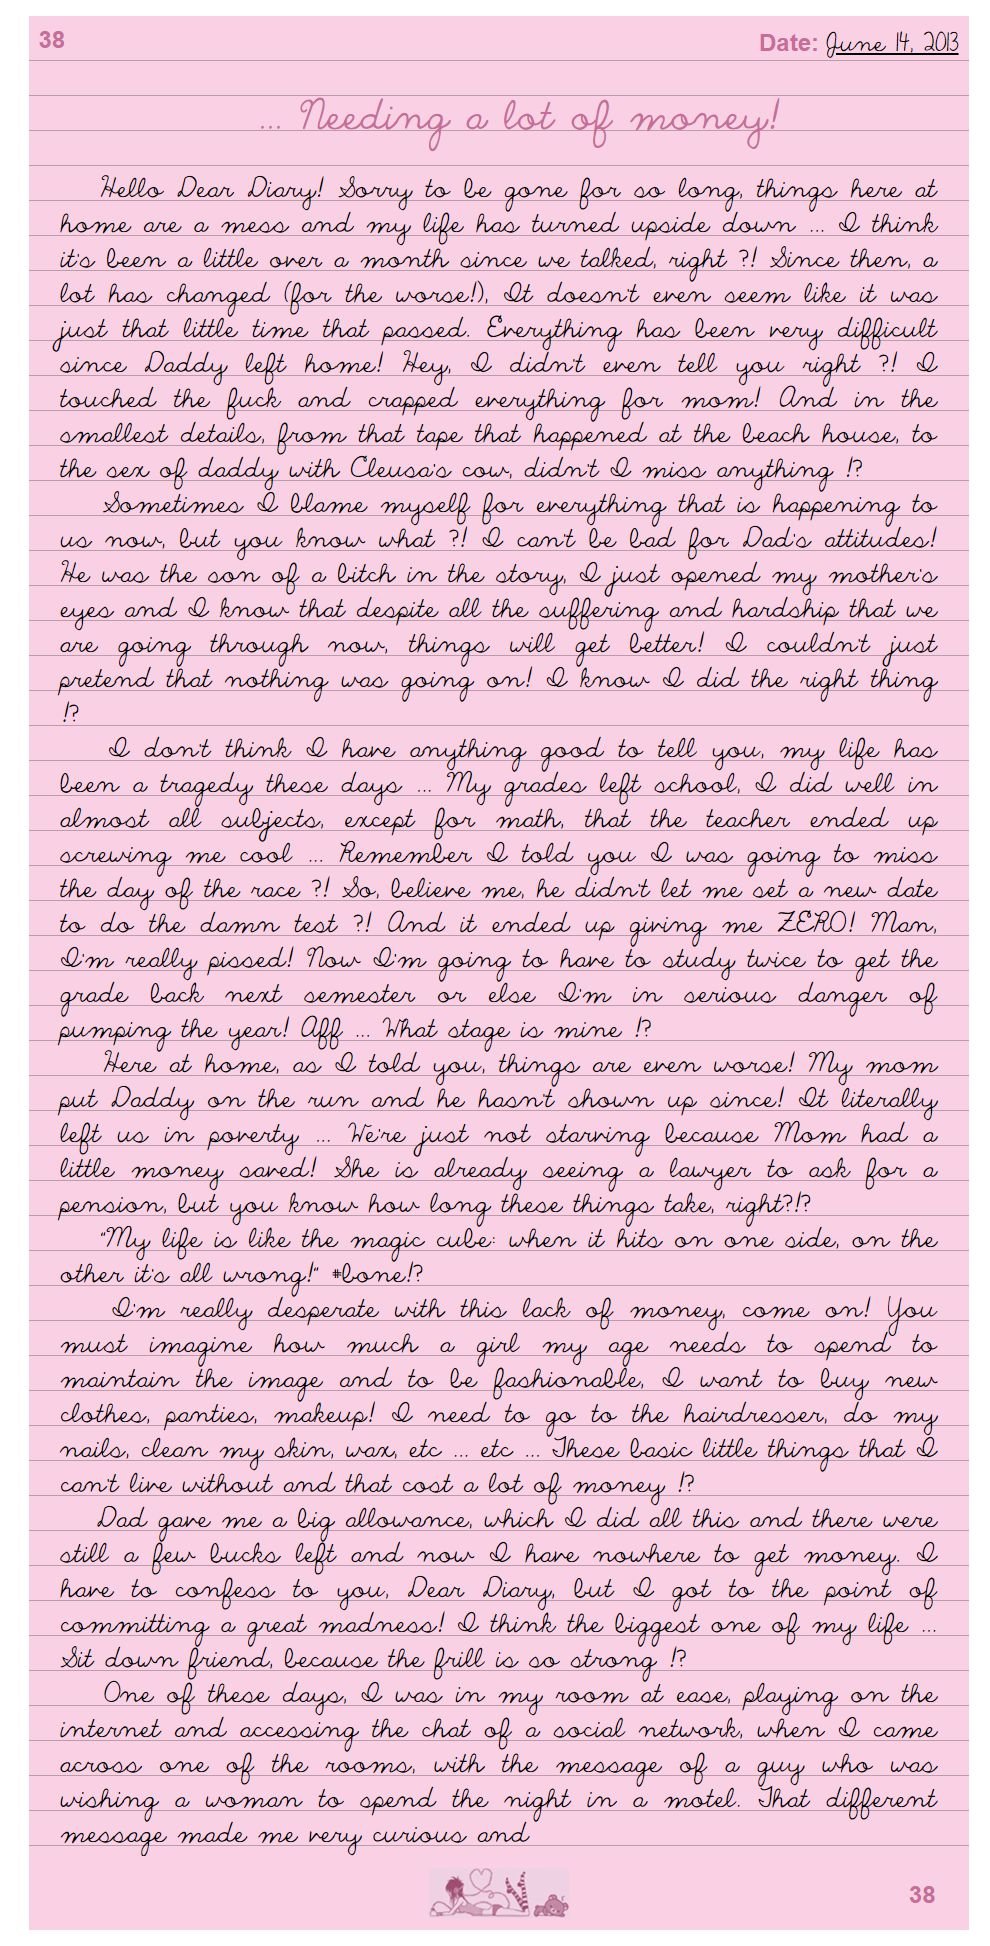 38
Date: June 14, 2013
... Needing a lot of money!
Hello Dear Diary! Sorry to be gone for so long, things here at
home are a mess and my life has turned upside down ... I think
it's been a little over a month since we talked, right ?! Since then, a
lot has changed (for the worse!), It doesn't even seem like it was
just that little time that passed. Everything has been very difficult
since Daddy left home! Hey, I didn't even tell you right ?! I
touched the fuck and crapped everything for mom! And in the
smallest details, from that tape that happened at the beach house, to
the sex of daddy with Cleusa's cow, didn't I miss anything !?
Sometimes I blame myself for everything that is happening to
us now, but you know what ?! I can't be bad for Dad's attitudes!
He was the son of a bitch in the story, I just opened my mother's
eyes and I know that despite all the suffering and hardship that we
are going through now, things will get better! I couldn't just
pretend that nothing was going on! I know I did the right thing
!?
I don't think I have anything good to tell you, my life has
been a tragedy these days ... My grades left school, I did well in
almost all subjects, except for math, that the teacher ended up
screwing me cool ... Remember I told you I was going to miss
the day of the race ?! So, believe me, he didn't let me set a new date
to do the damn test ?! And it ended up giving me ZERO! Man,
I'm really pissed! Now I'm going to have to study twice to get the
grade back next semester or else I'm in serious danger of
pumping the year! Aff ... What stage is mine !?
Here at home, as I told you, things are even worse! My mom
put Daddy on the run and he hasn't shown up since! It literally
left us in poverty ... We're just not starving because Mom had a
little money saved! She is already seeing a lawyer to ask for a
pension, but you know how long these things take, right?!?
"My life is like the magic cube: when it hits on one side, on the
other it's all wrong!" #bone!?
I'm really desperate with this lack of money, come on! You
must imagine how much a girl my age needs to spend to
maintain the image and to be fashionable, I want to buy new
clothes, panties, makeup! I need to go to the hairdresser, do my
nails, clean my skin, wax, etc ... etc ... These basic little things that I
can't live without and that cost a lot of money !?
Dad gave me a big allowance, which I did all this and there were
still a few bucks left and now I have nowhere to get money. I
have to confess to you, Dear Diary, but I got to the point of
committing a great madness! I think the biggest one of my life ...
Sit down friend, because the frill is so strong !?
One of these days, I was in my room at ease, playing on the
internet and accessing the chat of a social network, when I came
across one of the rooms, with the message of a guy who was
wishing a woman to spend the night in a motel. That different
message made me very curious and
38